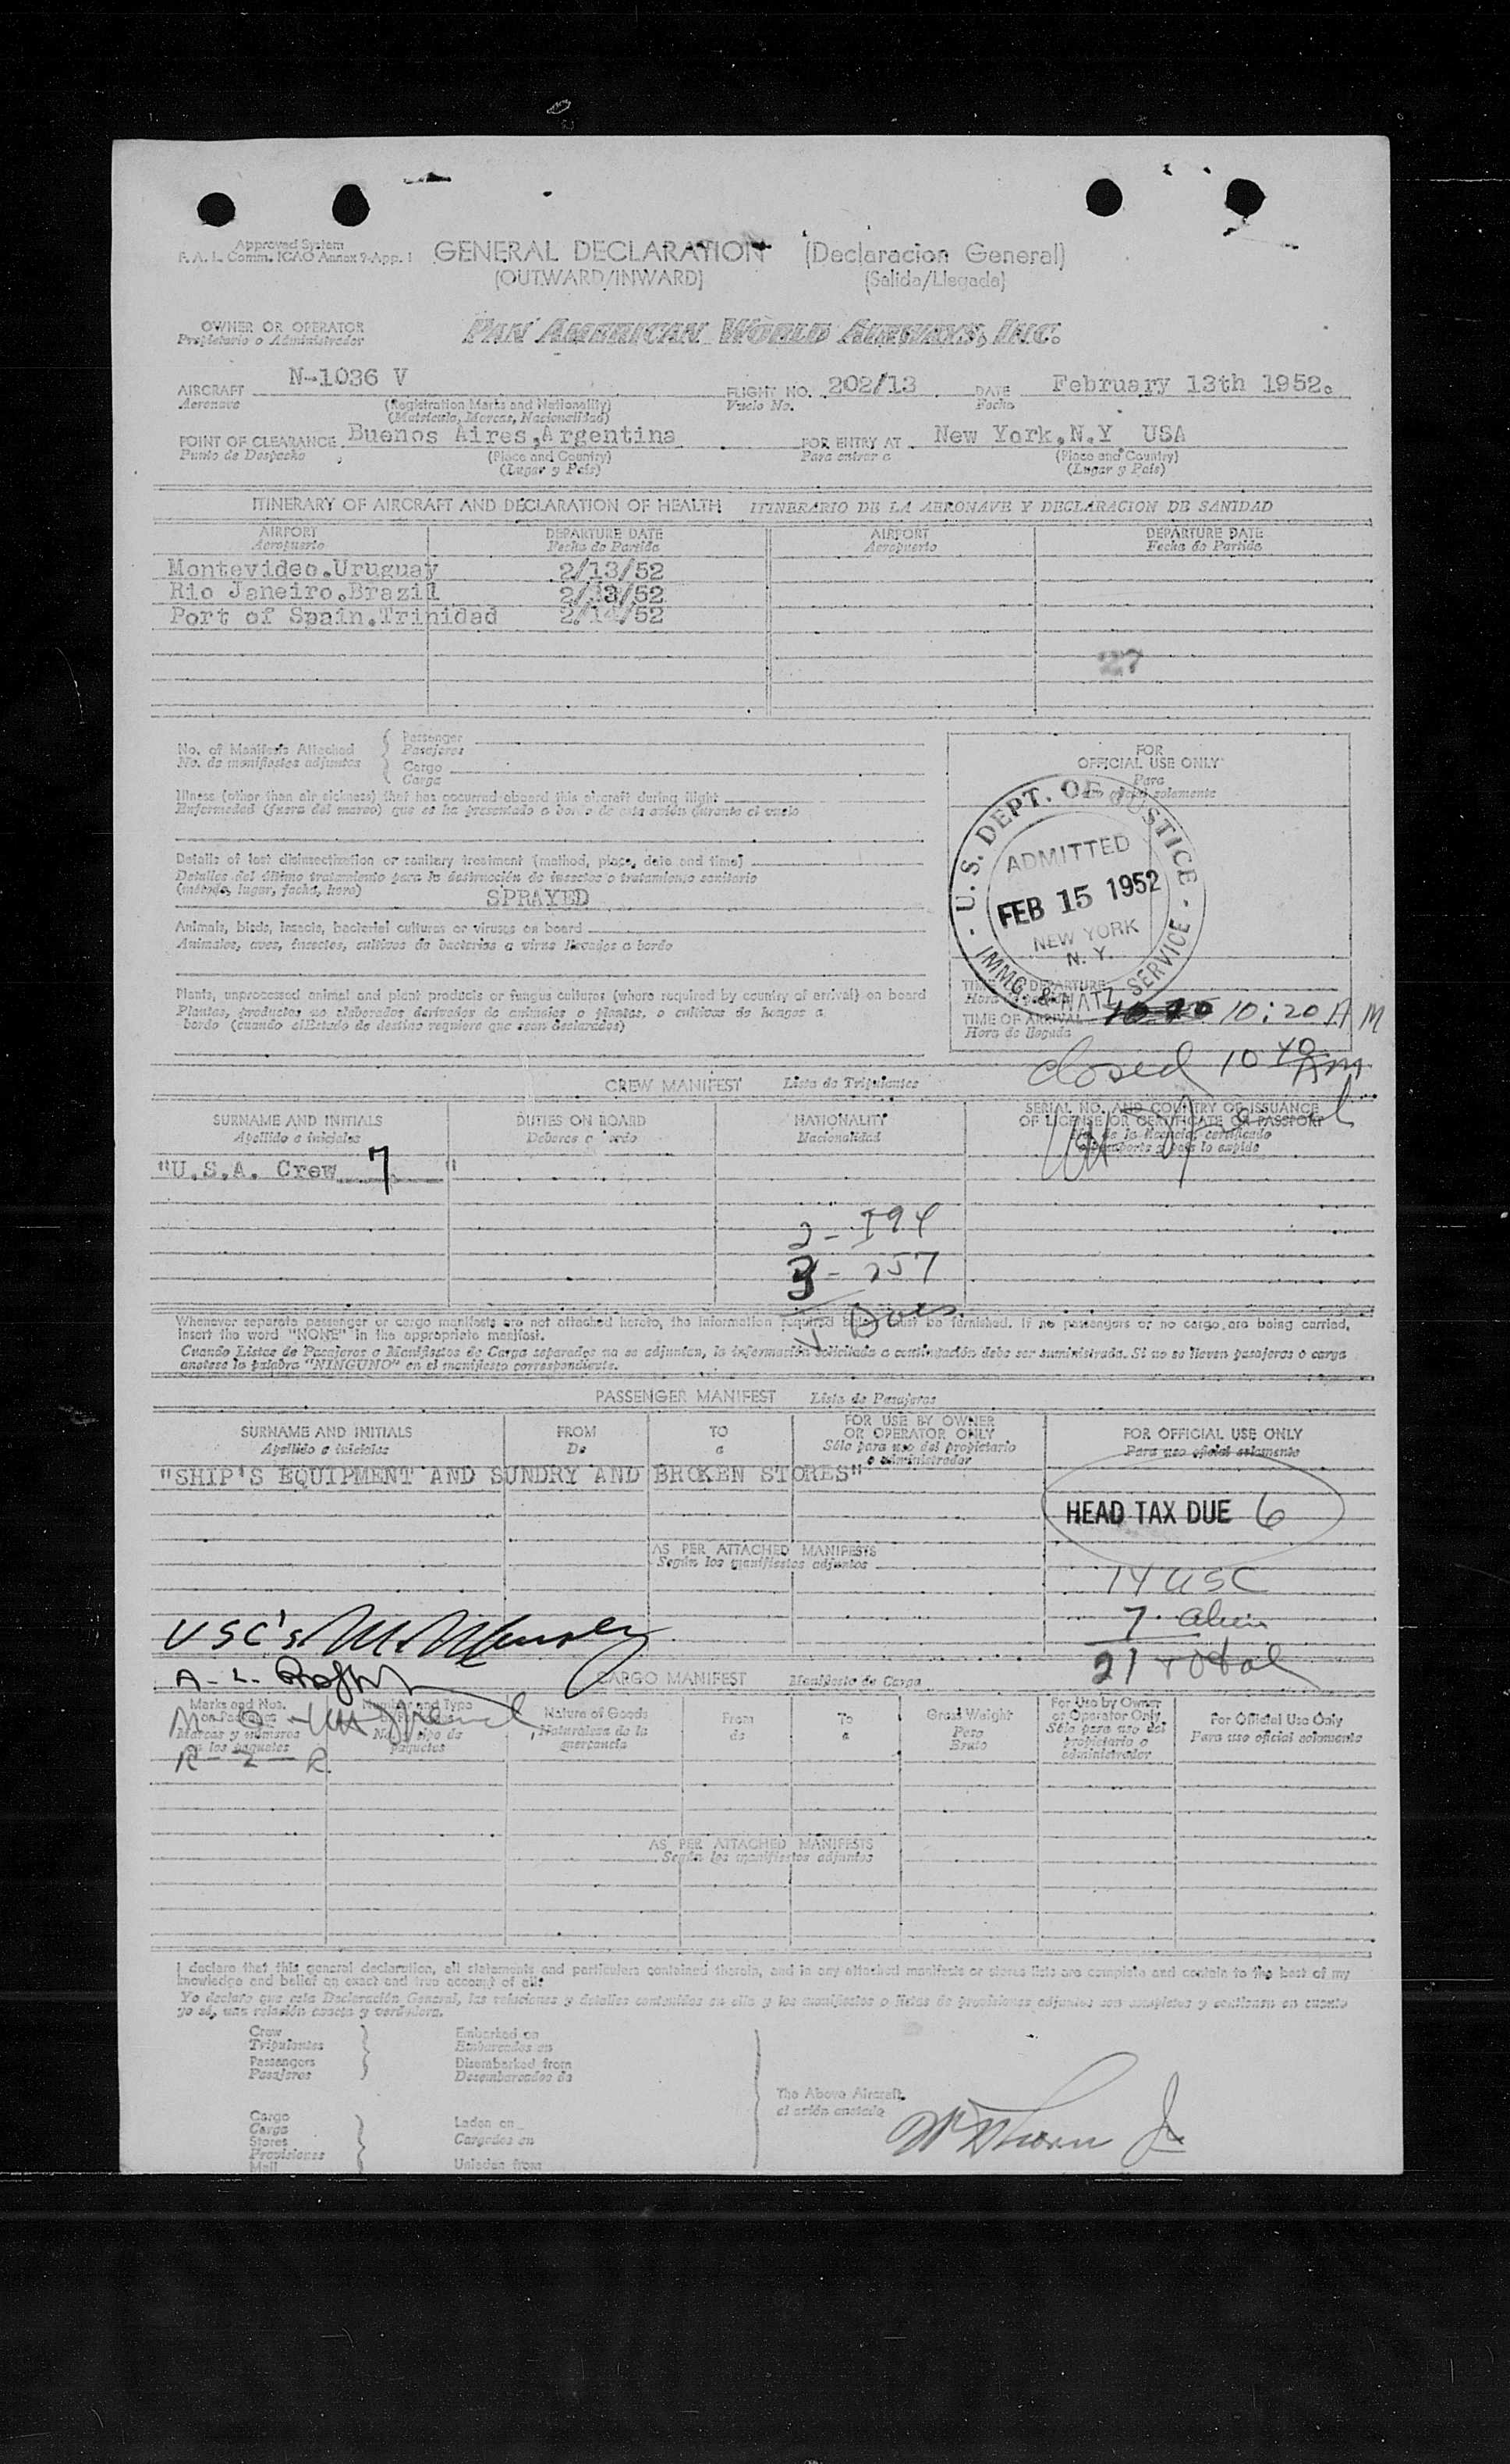 Approved System
F. A. L. Comm. ICAO Annex 9-App. 1
GENERAL DECLARATION (Declaracion General)
(OUTWARD/INWARD) (Salida/Llegada)
OWNER OR OPERATOR
Propietario o Administrador
PAN AMERICAN WORLD AIRWAYS, INC.
AIRCRAFT N-1036 V FLIGHT NO. 202/13 DATE February 13th 1952.
Aeronave (Registration Marks and Nationality) Vuelo No. Fecha
(Matricula, Marcas, Nacionalidad)
POINT OF CLEARANCE Buenos Aires,Argentina FOR ENTRY AT New York,N.Y USA
Punto de Despacho (Place and Country) Para entrar a (Place and Country)
(Lugar y Pais) (Lugar y Pais)
ITINERARY OF AIRCRAFT AND DECLARATION OF HEALTH ITINERARIO DE LA AERONAVE Y DECLARACION DE SANIDAD
AIRPORT DEPARTURE DATE AIRPORT DEPARTURE DATE
Aeropuerto Fecha de Partida Aeropuerto Fecha de Partida
Montevideo.Uruguay 2/13/52
Rio Janeiro.Brazil 2/13/52
Port of Spain.Trinidad 2/14/52
27
No. of Manifests Attached
No. de manifiestos adjuntos
Passenger
Pasajeros
Cargo
Carga
Illness (other than air sickness) that has occurred aboard this aircraft during flight
Enfermedad (fuera del mareo) que se ha presentado a bordo de este avión durante el vuelo
Details of last disinsectization or sanitary treatment (method, place, date and time)
Detalles del último tratamiento para la destrucción de insectos o tratamiento sanitario
(método, lugar, fecha, hora)
SPRAYED
Animals, birds, insects, bacterial cultures or viruses on board
Animales, aves, insectos, cultivos de bacterias o virus llevados a bordo
Plants, unprocessed animal and plant products or fungus cultures (where required by country of arrival) on board
Plantas, productos no elaborados derivados de animales o plantas, o cultivos de hongos a
bordo (cuando el Estado de destino requiere que sean declarados)
FOR
OFFICIAL USE ONLY
Para
uso oficial solamente
U. S. DEPT. OF JUSTICE
ADMITTED
FEB 15 1952
NEW YORK
N. Y.
IMMG. & NATZ. SERVICE
TIME OF DEPARTURE
TIME OF ARRIVAL 10:20 AM
Hora de llegada
closed 10 40 AM
CREW MANIFEST Lista de Tripulantes
SURNAME AND INITIALS DUTIES ON BOARD NATIONALITY SERIAL NO. AND COUNTRY OF ISSUANCE
OF LICENSE OR CERTIFICATE OR PASSPORT
Apellido e iniciales Deberes a bordo Nacionalidad
"U.S.A. Crew 7 "
2 - I94
3 - 257
Whenever separate passenger or cargo manifests are not attached hereto, the information required below must be furnished. If no passengers or no cargo are being carried,
insert the word "NONE" in the appropriate manifest.
Cuando Listas de Pasajeros o Manifiestos de Carga separados no se adjuntan, la información solicitada a continuación debe ser suministrada. Si no se llevan pasajeros o carga
anótese la palabra "NINGUNO" en el manifiesto correspondiente.
PASSENGER MANIFEST Lista de Pasajeros
SURNAME AND INITIALS FROM TO FOR USE BY OWNER
OR OPERATOR ONLY FOR OFFICIAL USE ONLY
Apellido e iniciales De a Sólo para uso del propietario
o administrador Para uso oficial solamente
"SHIP'S EQUIPMENT AND SUNDRY AND BROKEN STORES"
HEAD TAX DUE 6
AS PER ATTACHED MANIFESTS
Según los manifiestos adjuntos
14 USC
7 alien
21 Total
USC's
A. L.
CARGO MANIFEST Manifiesto de Carga
Marks and Nos.
on Packages
Marcas y números
en los paquetes
Number and Type
Nature of Goods
Naturaleza de la
mercancía
From
de
To
a
Gross Weight
Peso
Bruto
For Use by Owner
or Operator Only
Sólo para uso del
propietario o
administrador
For Official Use Only
Para uso oficial solamente
R - 2 - R
AS PER ATTACHED MANIFESTS
Según los manifiestos adjuntos
I declare that this general declaration, all statements and particulars contained therein, and in any attached manifests or stores lists are complete and contain to the best of my
knowledge and belief an exact and true account of all:
Yo declaro que esta Declaración General, las relaciones y detalles contenidos en ella y los manifiestos o listas de provisiones adjuntos son completos y contienen en cuanto
yo sé, una relación exacta y verdadera.
Crew
Tripulantes
Passengers
Pasajeros
Embarked on
Embarcados en
Disembarked from
Desembarcados de
Cargo
Carga
Stores
Provisiones
Mail
Laden on
Cargados en
Unladen from
The Above Aircraft.
el avión anotado